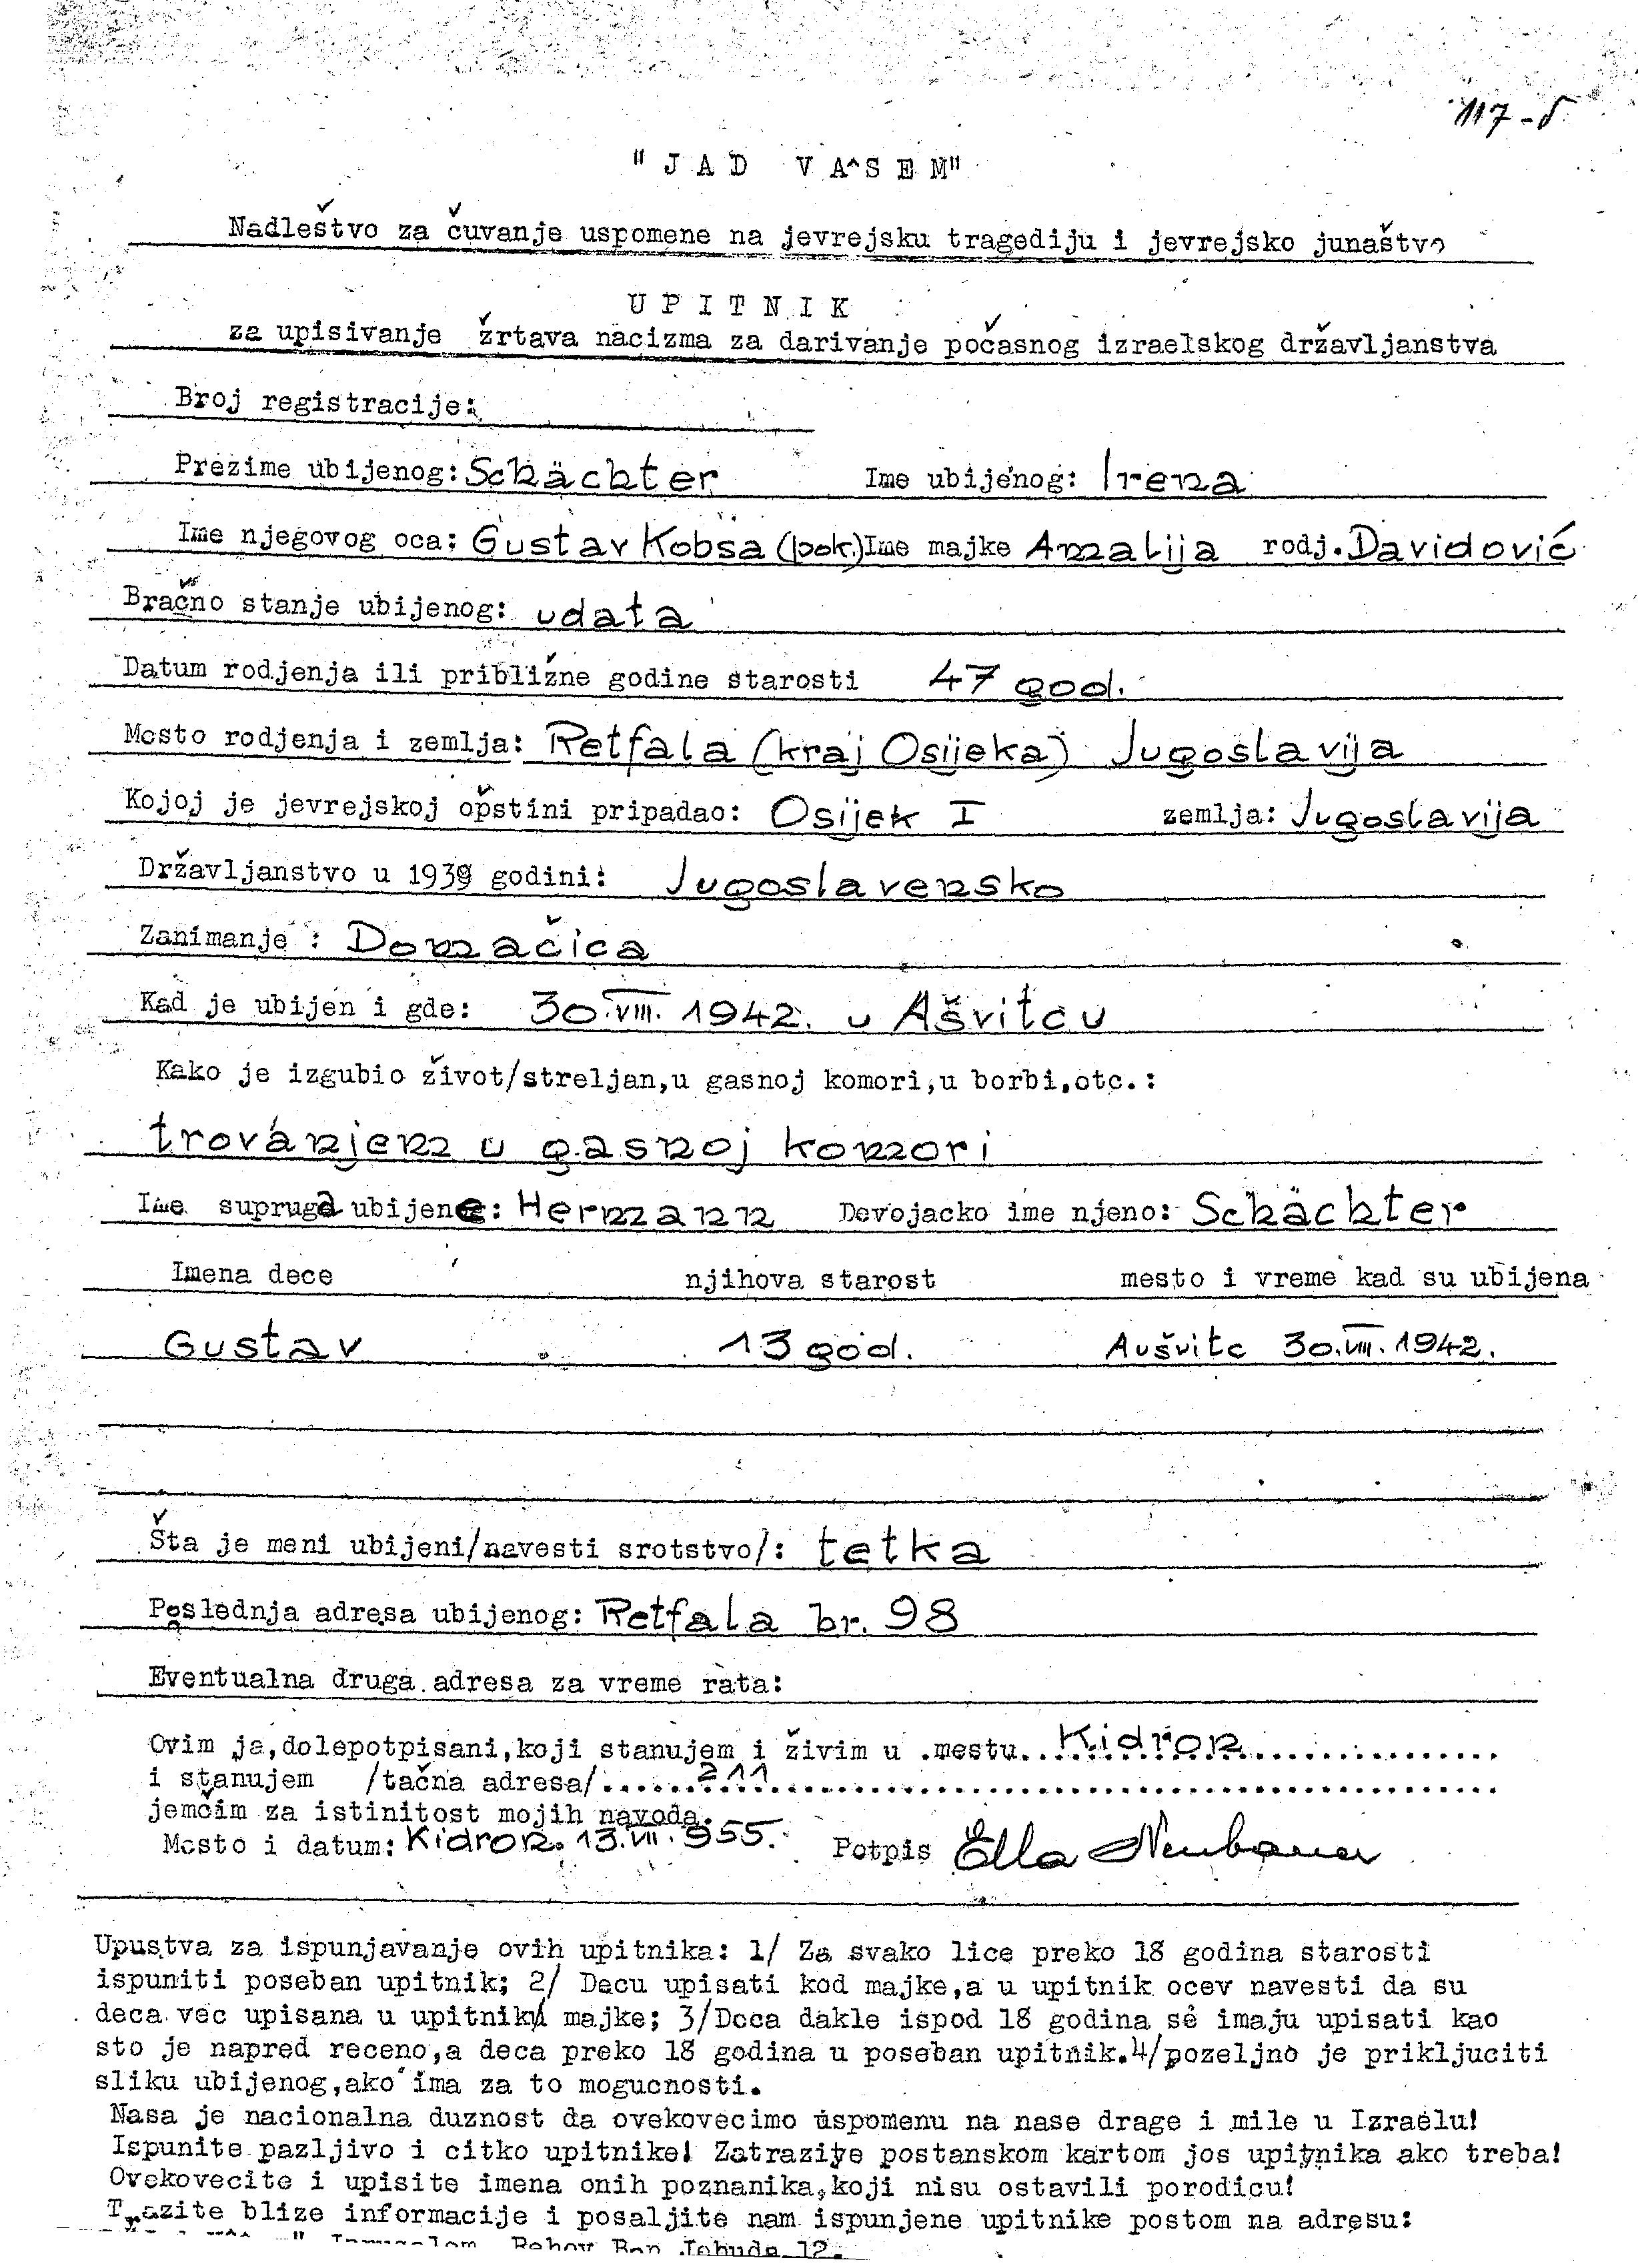 117-б
"JAD VA^SEM"
Nadleštvo za čuvanje uspomene na jevrejsku tragediju i jevrejsko junaštvo
UPITNIK
za upisivanje žrtava nacizma za darivanje počasnog izraelskog državljanstva
Broj registracije:
Prezime ubijenog: Schächter Ime ubijenog: Irena
Ime njegovog oca: Gustav Kobsa (pok.) Ime majke Amalija rodj. Davidović
Bračno stanje ubijenog: udata
Datum rodjenja ili približne godine starosti 47 god.
Mesto rodjenja i zemlja: Retfala (kraj Osijeka) Jugoslavija
Kojoj je jevrejskoj opštini pripadao: Osijek I zemlja: Jugoslavija
Državljanstvo u 1939 godini: Jugoslavensko
Zanimanje: Domačica
Kad je ubijen i gde: 30.VIII. 1942. u Ašvitcu
Kako je izgubio život/streljan,u gasnoj komori,u borbi,etc.:
trovanjem u gasnoj komori
Ime supruga ubijene: Hermann Devojacko ime njeno: Schächter
Imena dece njihova starost mesto i vreme kad su ubijena
Gustav 13 god. Aušvitc 30.VIII.1942.
Šta je meni ubijeni/navesti srotstvo/: tetka
Poslednja adresa ubijenog: Retfala br. 98
Eventualna druga adresa za vreme rata:
Ovim ja,dolepotpisani,koji stanujem i živim u mestu...Kidron...
i stanujem /tačna adresa/......211......
jemčim za istinitost mojih navoda.
Mesto i datum: Kidron. 13.VII.955. Potpis Ella Neubauer
Upustva za ispunjavanje ovih upitnika: 1/ Za svako lice preko 18 godina starosti
ispuniti poseban upitnik; 2/ Decu upisati kod majke,a u upitnik ocev navesti da su
deca vec upisana u upitnik majke; 3/Deca dakle ispod 18 godina se imaju upisati kao
sto je napred receno,a deca preko 18 godina u poseban upitnik.4/pozeljno je prikljuciti
sliku ubijenog,ako ima za to mogucnosti.
Nasa je nacionalna duznost da ovekovecimo uspomenu na nase drage i mile u Izraelu!
Ispunite pazljivo i citko upitnike! Zatrazite postanskom kartom jos upitnika ako treba!
Ovekovecite i upisite imena onih poznanika,koji nisu ostavili porodicu!
Trazite blize informacije i posaljite nam ispunjene upitnike postom na adresu:
Rehov Ben Jehuda 12.